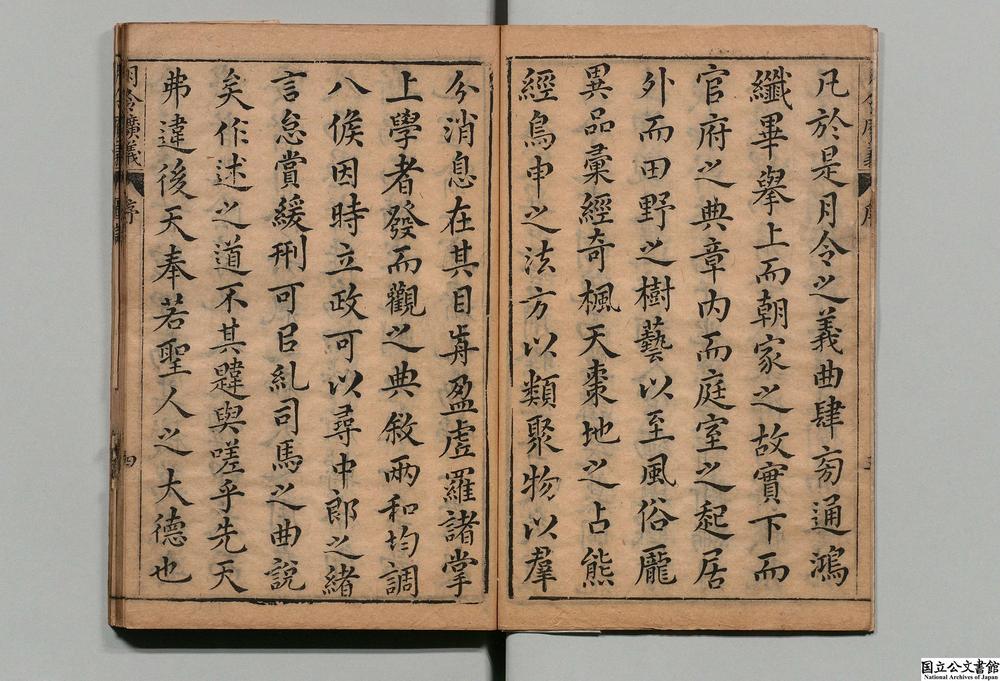 凡於是月令之義曲肆㫄通鴻
纖畢擧上而朝家之故實下而
官府之典章内而庭室之起居
外而田野之樹藝以至風俗龎
異品彙經奇楓天棗地之占熊
經鳥申之法方以類聚物以羣
分消息在其目歬盈虗羅諸掌
上學者發而觀之典敘兩和均調
八候因時立政可以尋中郎之緒
言怠賞緩刑可㠯糺司馬之曲說
矣作述之道不其韙與嗟乎先天
弗違後天奉若聖人之大德也
月令廣義
序
四
国立公文書館
National Archives of Japan